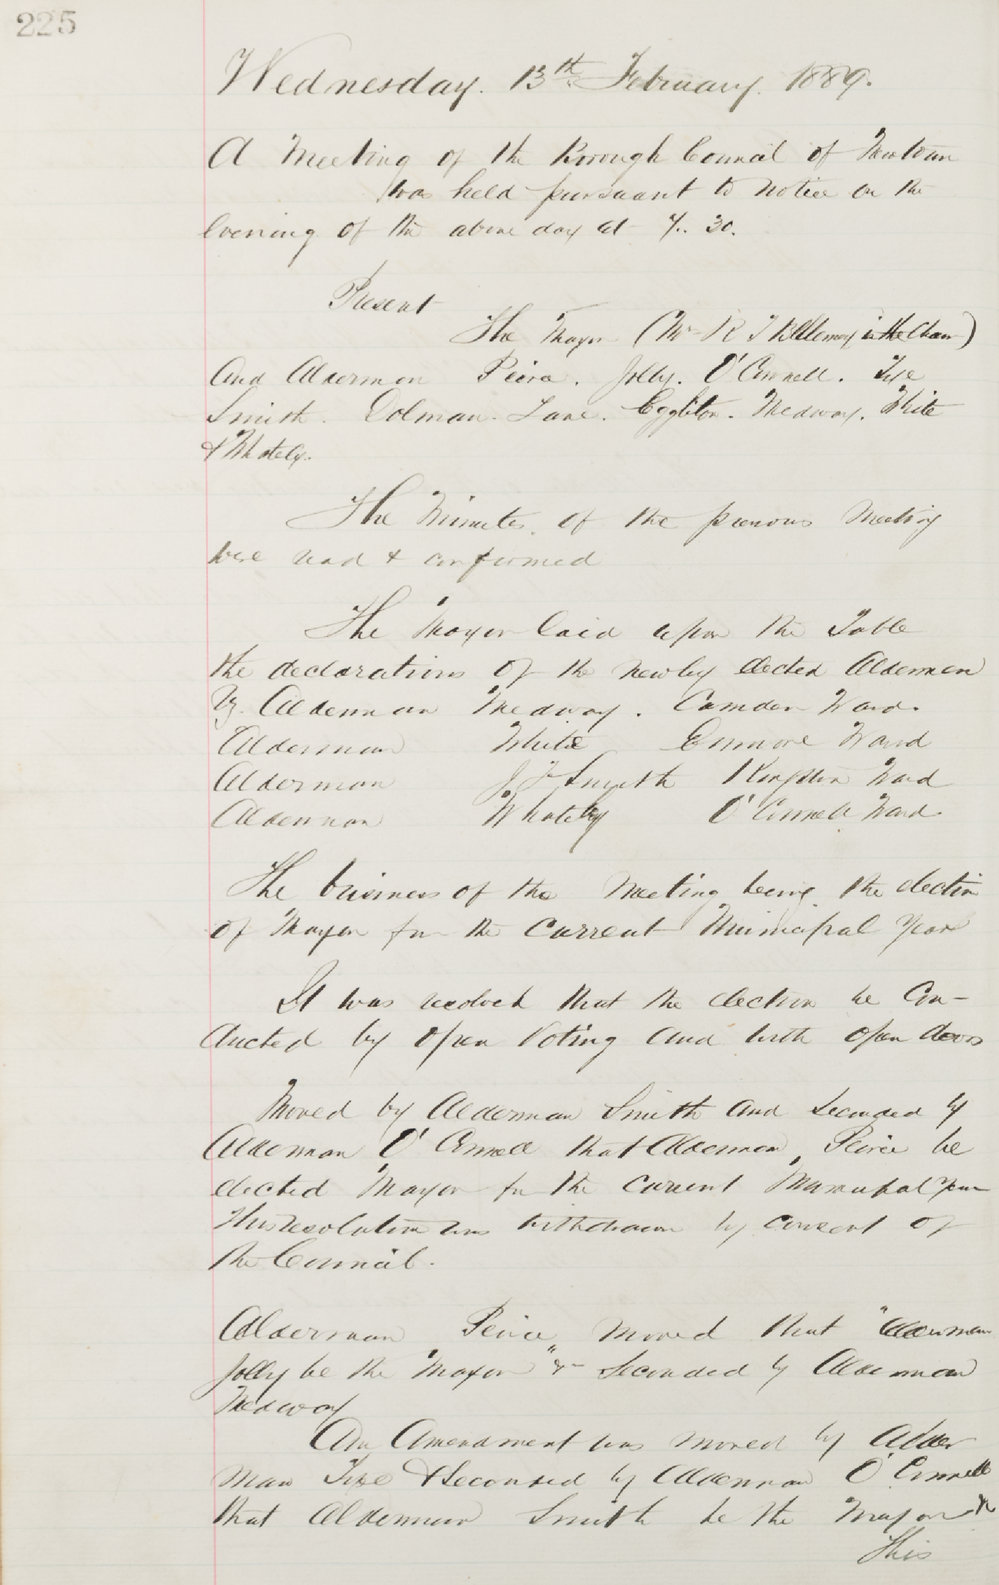 225
Wednesday. 13th February. 1889.
A Meeting of the Borough Council of Newtown
was held pursuant to notice on the
evening of the above day at 7. 30.
Present
The Mayor (Mr R T Bellemey in the Chair)
And Aldermen Peirce. Jolly. O'Connell. Tye
Smith. Dolman. Lane. Eggleton. Medway. White
& Whately.
The Minutes of the previous Meeting
were read & confirmed
The Mayor laid upon the Table
the declarations of the newly elected Aldermen
Viz. Alderman Medway. Camden Ward.
Alderman White Enmore Ward
Alderman J F Smyth Kingston Ward
Alderman Whately O'Connell Ward.
The business of the Meeting being the election
of Mayor for the Current Municipal Year
It was resolved that the election be Con-
ducted by open Voting and with open doors
Moved by Alderman Smith and seconded by
Alderman O'Connell that Alderman Peirce be
elected Mayor for the Current Municipal Year
This resolution was withdrawn by consent of
the Council.
Alderman Peirce moved that "Alderman
Jolly be the Mayor" & seconded by Alderman
Medway
An Amendment was moved by Alder
man Tye & Seconded by Alderman O'Connell
that Alderman Smith be the Mayor &c
This